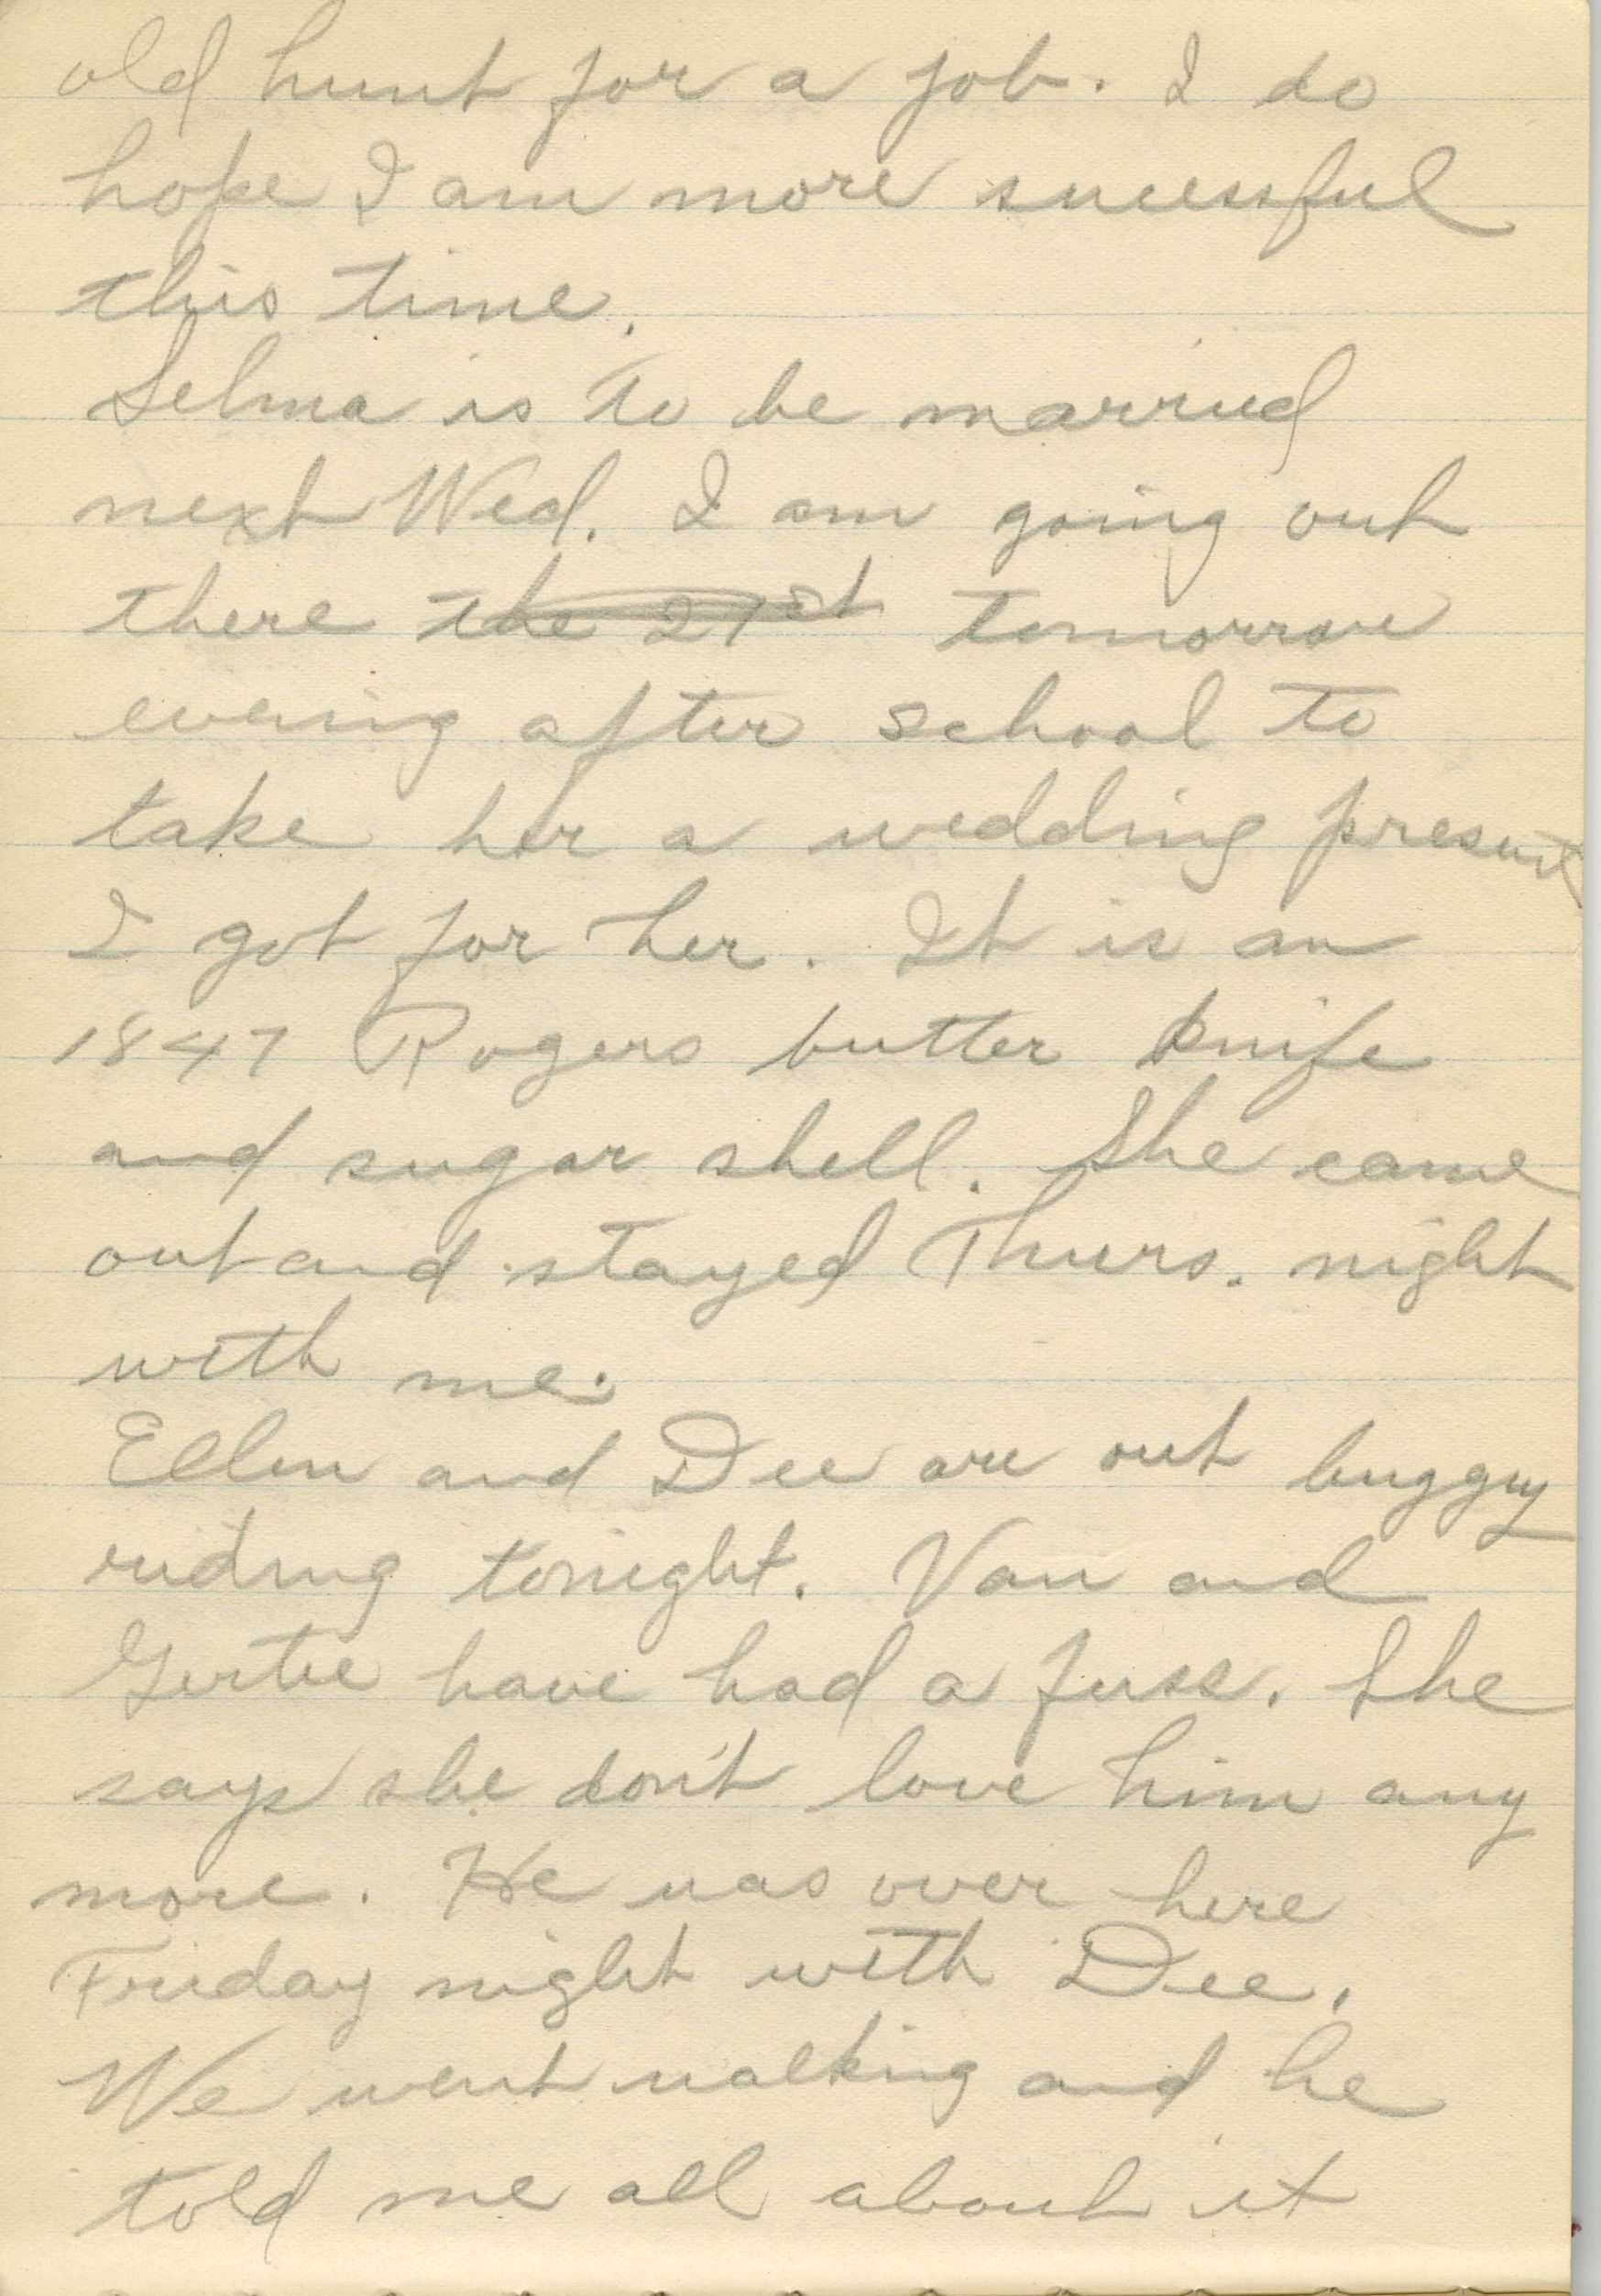 old hunt for a job. I do
hope I am more sucessful
this time.
Selma is to be married
next Wed. I am going out
there the 21st tomorrow
evening after school to
take her a wedding present
I got for her. It is an
1847 Rogers butter knife
and sugar shell. She came
out and stayed Thurs. night
with me.
Ellen and Dee are out buggy
riding tonight. Van and
Gertie have had a fuss. She
says she don't love him any
more. He was over here
Friday night with Dee.
We went walking and he
told me all about it